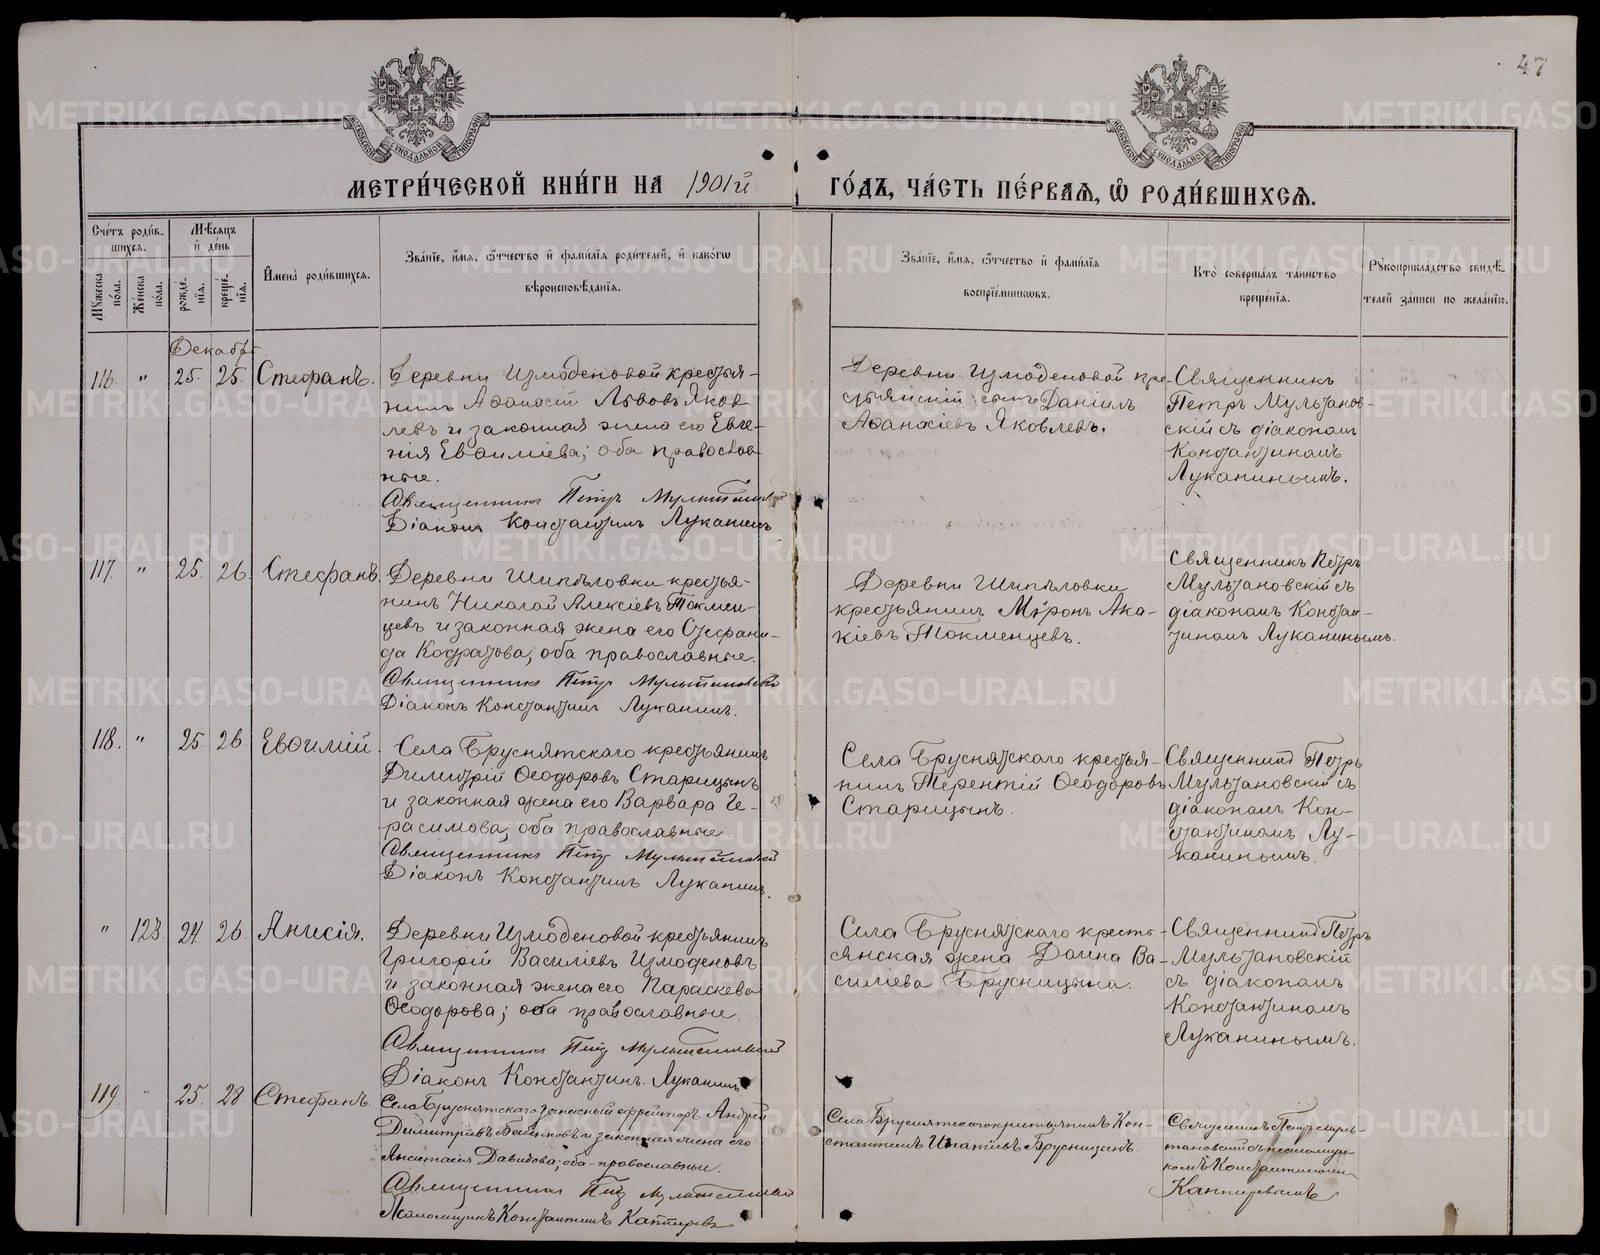 47
МОСКОВСКОЙ СѴНОДАЛЬНОЙ ТИПОГРАФІИ
МОСКОВСКОЙ СѴНОДАЛЬНОЙ ТИПОГРАФІИ
МЕТРИ́ЧЕСКОЙ КНИ́ГИ НА 1901й ГО́ДЪ, ЧА́СТЬ ПЕ́РВАѦ, Ѡ҆ РОДИ́ВШИХСѦ.
Сче́тъ роди́в-
шихсѧ.
Мꙋжеска по́ла.
Же́нска по́ла.
Мѣ́сѧцъ
и҆ де́нь
рожде́-
нїѧ.
креще́-
нїѧ.
И҆мена̀ роди́вшихсѧ.
Зва́нїе, и҆́мѧ, ѻ҆́тчество и҆ фами́лїѧ роди́телей, и҆ како́гѡ
вѣроисповѣ́данїѧ.
Зва́нїе, и҆́мѧ, ѻ҆́тчество и҆ фами́лїѧ
воспрїе́мникѡвъ.
Кто̀ соверша́лъ та́инство
креще́нїѧ.
Рꙋкоприкла́дство свидѣ́-
телей за́писи по жела́нїю.
Декабрь.
116. " 25. 25. Стефанъ.
Деревни Измоденовой крестья-
нинъ Аѳанасій Львовъ Яков
левъ и законная жена его Евге-
нія Евѳиміева; оба православ
ные.
Священникъ Петръ Мультановскій
Діаконъ Константинъ Луканинъ
Деревни Измоденовой кре-
стьянскій сынъ Даніилъ
Аѳанасіевъ Яковлевъ.
Священникъ
Петръ Мультанов-
скій съ діакономъ
Константиномъ
Луканинымъ.
117. " 25. 26. Стефанъ.
Деревни Шипѣловки крестья-
нинъ Николай Алексіевъ Токмен-
цевъ и законная жена его Стефани-
да Кодратова; оба православные.
Священникъ Петръ Мультановскій
Діаконъ Константинъ Луканинъ.
Деревни Шипѣловки
крестьянинъ Мѵронъ Ака-
кіевъ Токменцевъ.
Священникъ Петръ
Мультановскій съ
діакономъ Констан-
тиномъ Луканинымъ.
118. " 25. 26. Евѳимій.
Села Бруснятскаго крестьянинъ
Димитрій Ѳеодоровъ Старицынъ
и законная жена его Варвара Ге-
расимова; оба православные.
Священникъ Петръ Мультановскій
Діаконъ Константинъ Луканинъ.
Села Бруснятскаго крестья-
нинъ Терентій Ѳеодоровъ
Старицынъ.
Священникъ Петръ
Мультановскій съ
діакономъ Кон-
стантиномъ Лу-
канинымъ.
" 123. 24 26. Анисія.
Деревни Измоденовой крестьянинъ
Григорій Василіевъ Измоденовъ
и законная жена его Параскева
Ѳеодорова; оба православные.
Священникъ Петръ Мультановскій
Діаконъ Константинъ Луканинъ
Села Бруснятскаго кресть-
янская жена Домна Ва-
силіева Брусницына.
Священникъ Петръ
Мультановскій
съ діакономъ
Константиномъ
Луканинымъ.
119. " 25. 28. Стефанъ.
Села Бруснятскаго запасный ефрейторъ Андрей
Димитріевъ Бабенковъ и законная жена его
Анастасія Давидова; оба православные.
Священникъ Петръ Мультановскій
Псаломщикъ Константинъ
Села Бруснятскаго крестьянинъ Кон-
стантинъ Игнатіевъ Брусницынъ.
Священникъ Петръ Муль-
тановскій съ псаломщи-
комъ Константиномъ